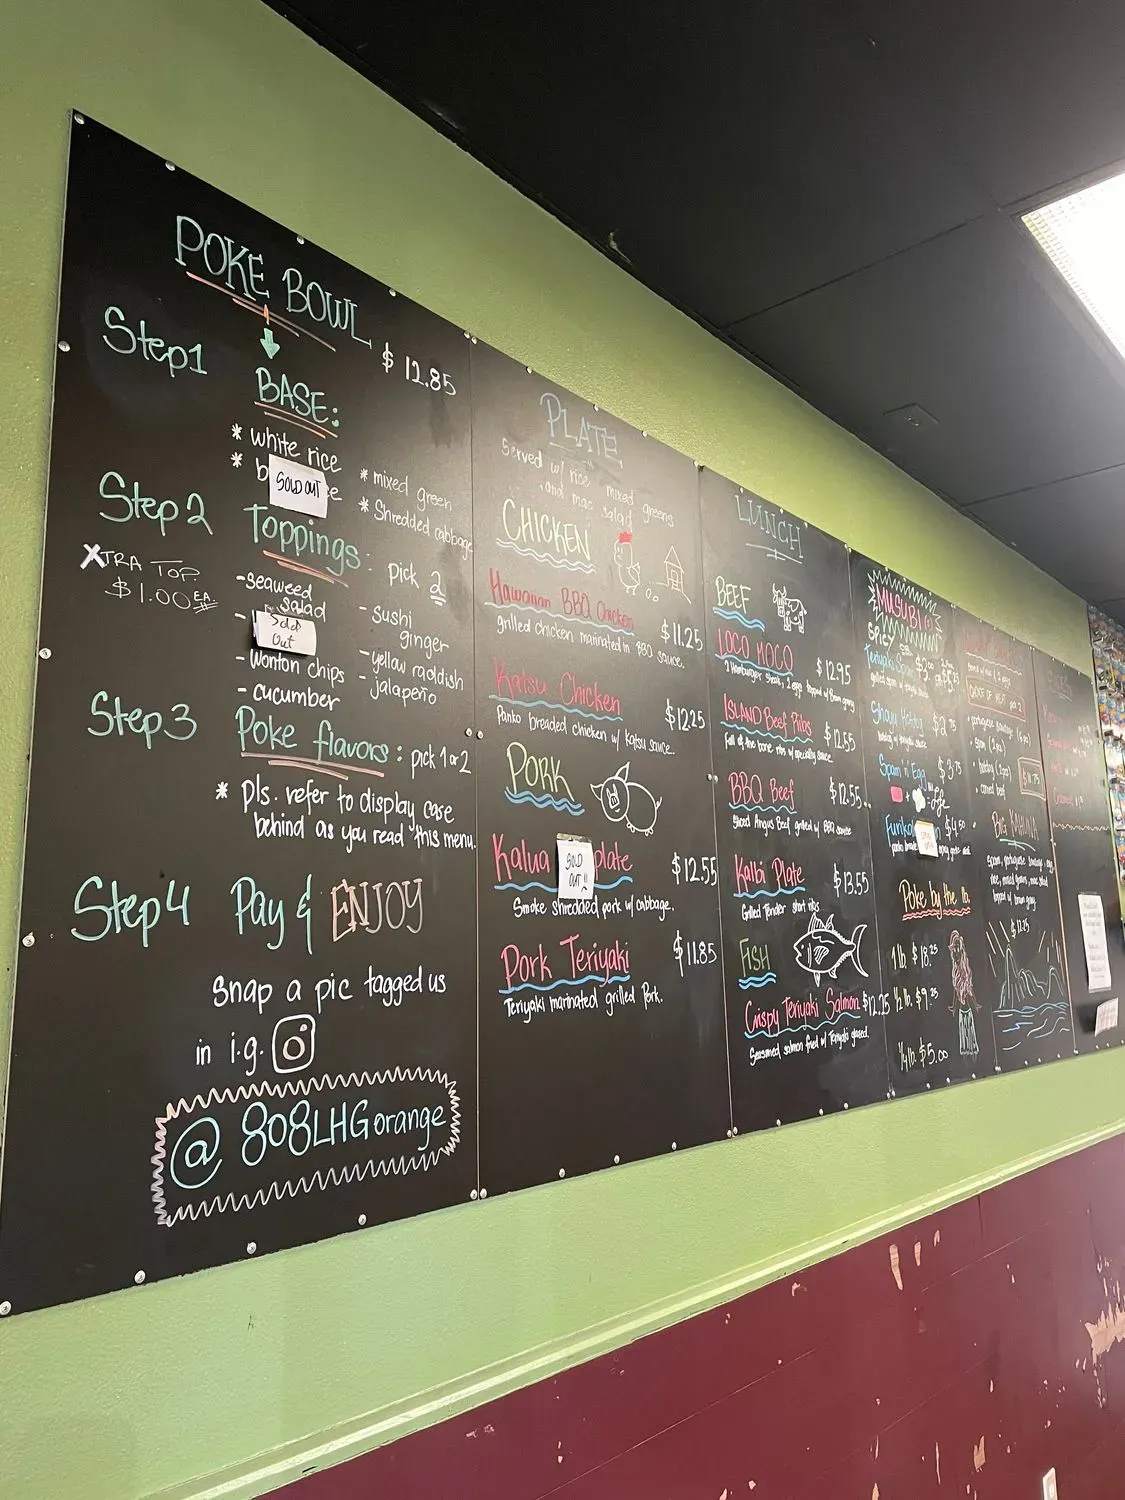 POKE BOWL
$12.85
Step 1
BASE:
* white rice
* b
SOLD OUT
* mixed green
* Shredded cabbage
Step 2
Toppings: pick 2
XTRA TOP.
$1.00 EA.
- seaweed
salad
Sold
Out
- wonton chips
- cucumber
- sushi
ginger
- yellow raddish
- jalapeño
Step 3
Poke flavors: pick 1 or 2
* Pls. refer to display case
behind as you read this menu.
Step 4 Pay & ENJOY
Snap a pic tagged us
in i.g.
@808LHGorange
PLATE
Served w/ rice mixed greens
and mac salad
CHICKEN
Hawaiian BBQ Chicken $11.25
grilled chicken marinated in BBQ sauce.
Katsu Chicken $12.25
Panko breaded chicken w/ Katsu sauce.
PORK
Kalua plate $12.55
SOLD
OUT!!
Smoke shredded pork w/ cabbage.
Pork Teriyaki $11.85
Teriyaki marinated grilled Pork.
LUNCH
BEEF
LOCO MOCO $12.95
2 Hamburger steak, 2 eggs topped w/ Brown gravy
ISLAND Beef Ribs $12.55
Fall of the bone ribs w/ specialty sauce
BBQ Beef $12.55
Sliced Angus Beef grilled w/ BBQ sauce
Kalbi Plate $13.55
Grilled Tender short ribs
FISH
Crispy Teriyaki Salmon $12.25
Seasoned salmon fried w/ Teriyaki glazed.
MUSUBI
SPICY
Teriyaki
$2.75
Spam 'n' Egg $3.75
Poke by the lb.
1 lb. $18.25
½ lb. $9.25
¼ lb. $5.00
· portuguese sausage
· spam (2 pcs)
· corned beef
BIG KAHUNA
Spam, portuguese sausage, egg,
rice, mixed greens, mac salad
topped w/ brown gravy
$12.25